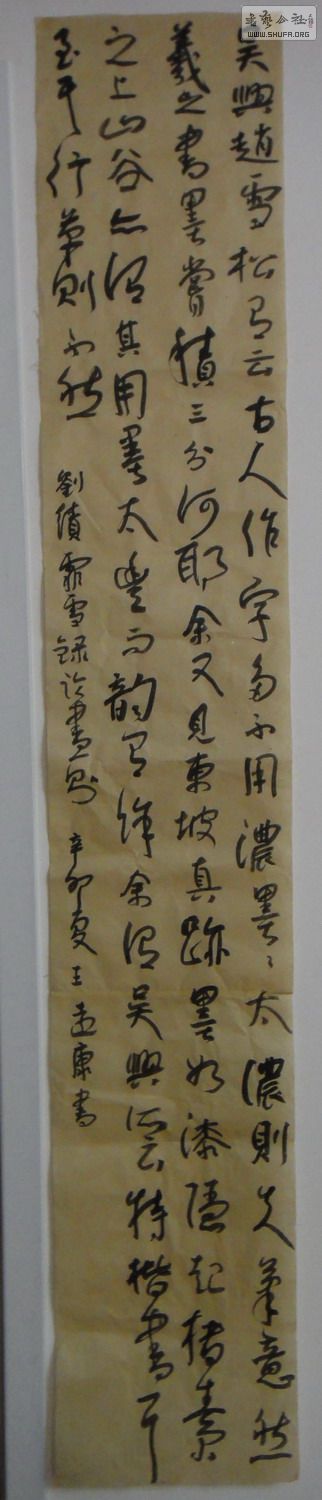 書藝公社
WWW.SHUFA.ORG
吴興趙雪松有云古人作字多不用濃墨〻太濃則失筆意然
羲之書墨嘗積三分何耶余又見東坡真跡墨如漆隱起楮素
之上山谷亦謂其用墨太豐而韻有餘余謂吴興所云特楷書耳
至于行草則不然
劉績霏雪録論書一則 辛卯夏王康書